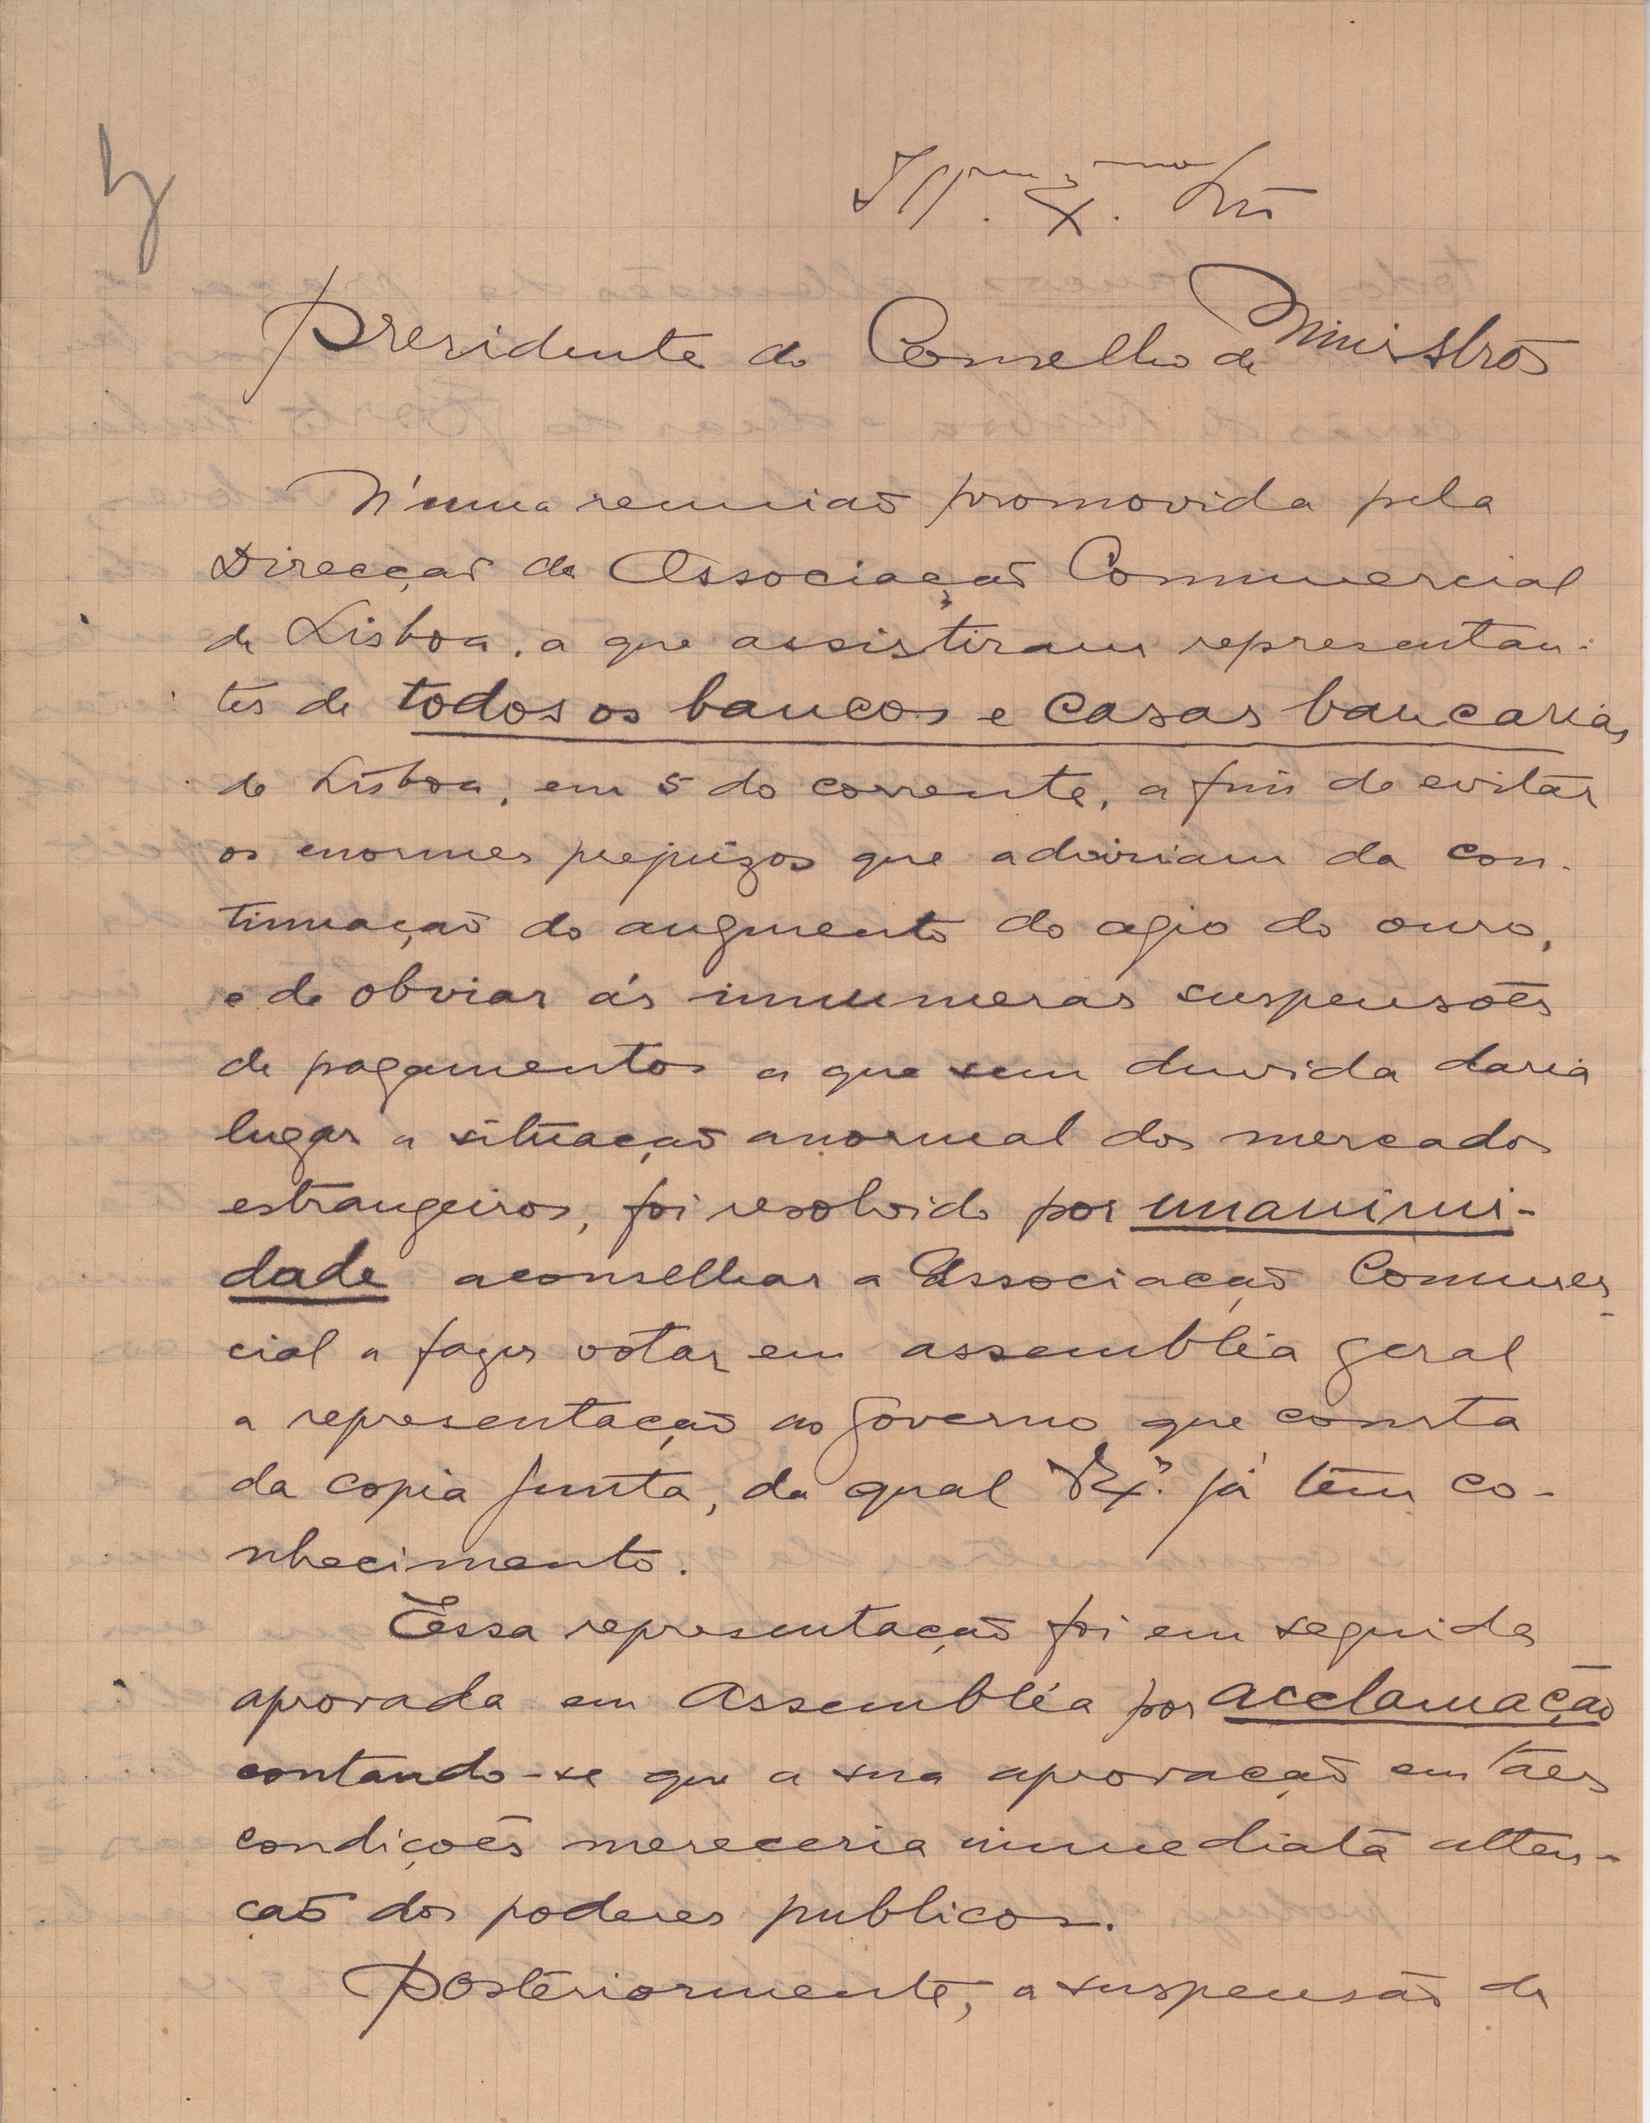 Ill.mo Ex.mo Snr.
Presidente do Conselho de Ministros
N'uma reunião promovida pela
Direcção da Associação Commercial
de Lisboa, a que assistiram representan-
tes de todos os bancos e casas bancarias
de Lisboa, em 5 do corrente, a fim de evitar
os enormes prejuizos que adviriam da con-
tinuação do augmento do agio do ouro,
e de obviar ás innumeras suspensões
de pagamentos a que sem duvida daria
lugar a situação anormal dos mercados
estrangeiros, foi resolvido por unanimi-
dade aconselhar a Associação Commer-
cial a fazer votar em assembléa geral
a representação ao governo que consta
da copia junta, da qual V. Ex.ª já tem co-
nhecimento.
Essa representação foi em seguida
aprovada em Assembléa por acclamação
contando-se que a sua aprovação em táes
condições mereceria immediata atten-
ção dos poderes publicos.
Posteriormente, a suspensão de